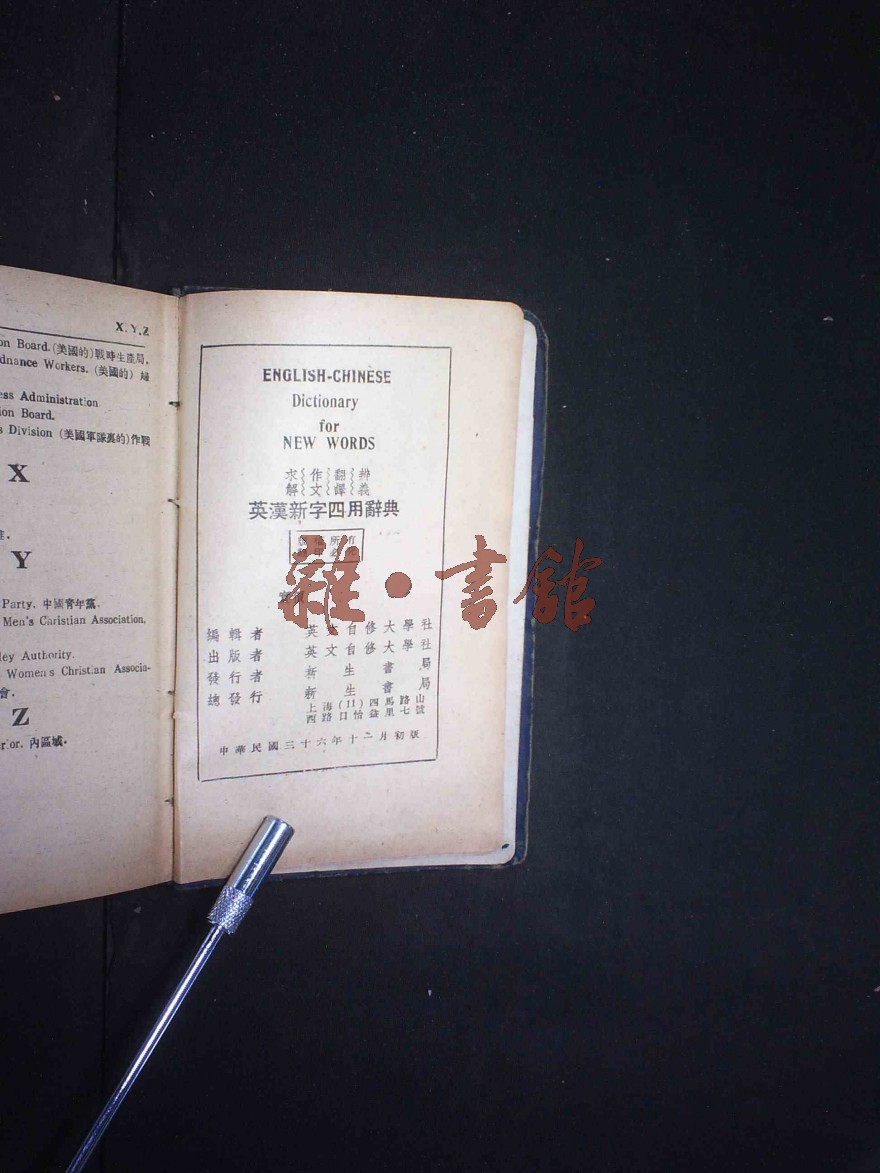 X, Y, Z
on Board. (美國的)戰時生產局.
dnance Workers. (美國的) 婦
ess Administration
ion Board.
s Division (美國軍隊裏的)作戰
X
Y
Party. 中國青年黨.
Men's Christian Association.
ley Authority.
Women's Christian Associa-
會.
Z
rior. 內區域.
ENGLISH-CHINESE
Dictionary
for
NEW WORDS
求 作 翻 辨
解 文 譯 義
英漢新字四用辭典
編輯者 英文自修大學社
出版者 英文自修大學社
發行者 新生書局
總發行 新生書局
上海(11)四馬路山
西路口怡益里七號
中華民國三十六年十二月初版
雜·書館